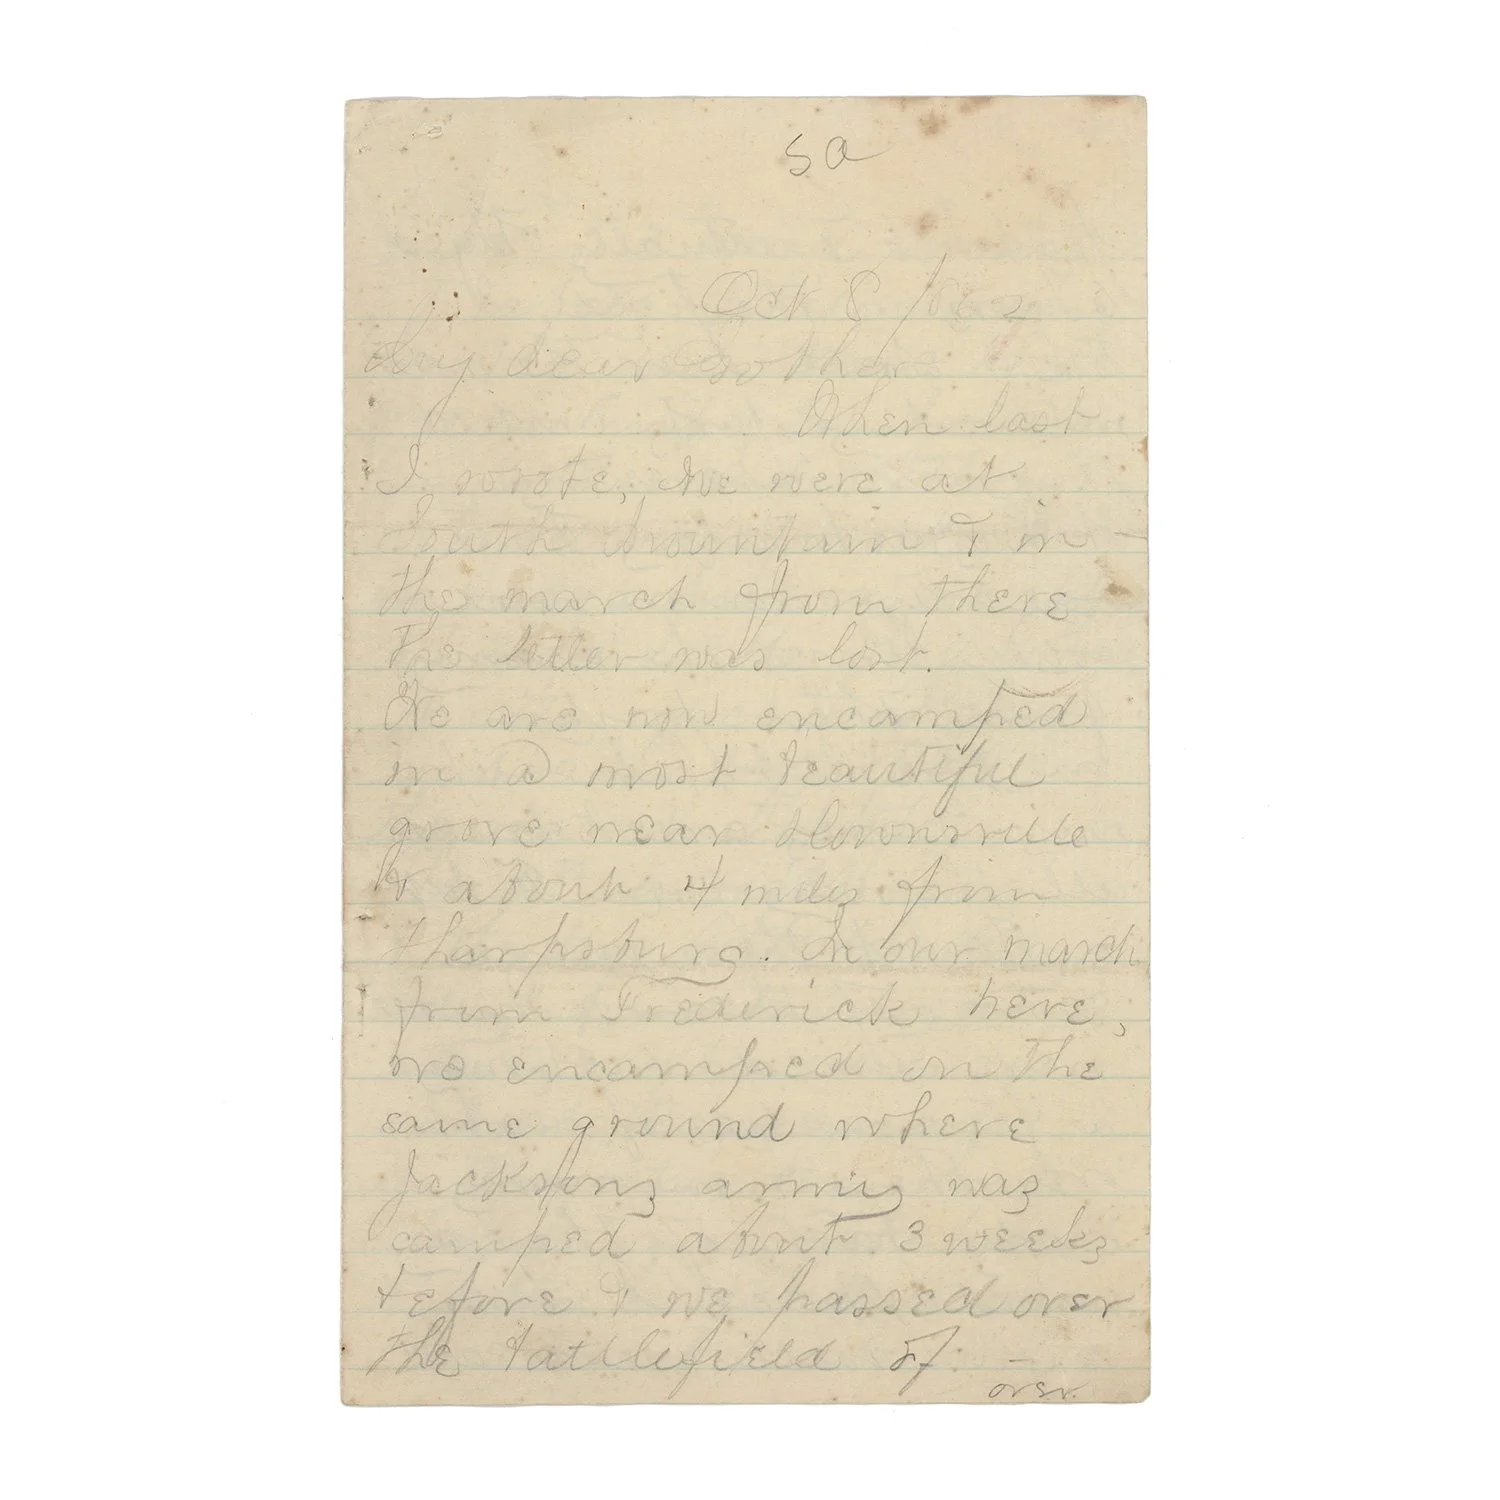 5a
Oct 8 1862
My dear Mother
When last
I wrote, We were at
South Mountain & in
the march from there
the letter was lost.
We are now encamped
in a most beautiful
grove near Brownsville
& about 4 miles from
Sharpsburg. In our march
from Frederick here,
we encamped on the
same ground where
Jacksons army was
camped about 3 weeks
before & we passed over
the battlefield of –
over.